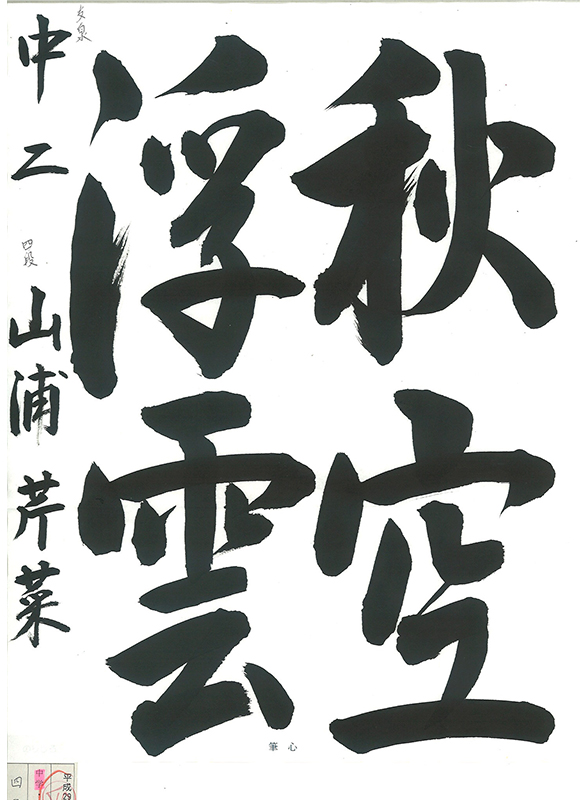 秋空
浮雲
友泉
中二
四段
山浦芹菜
心筆
平成29
中学
四